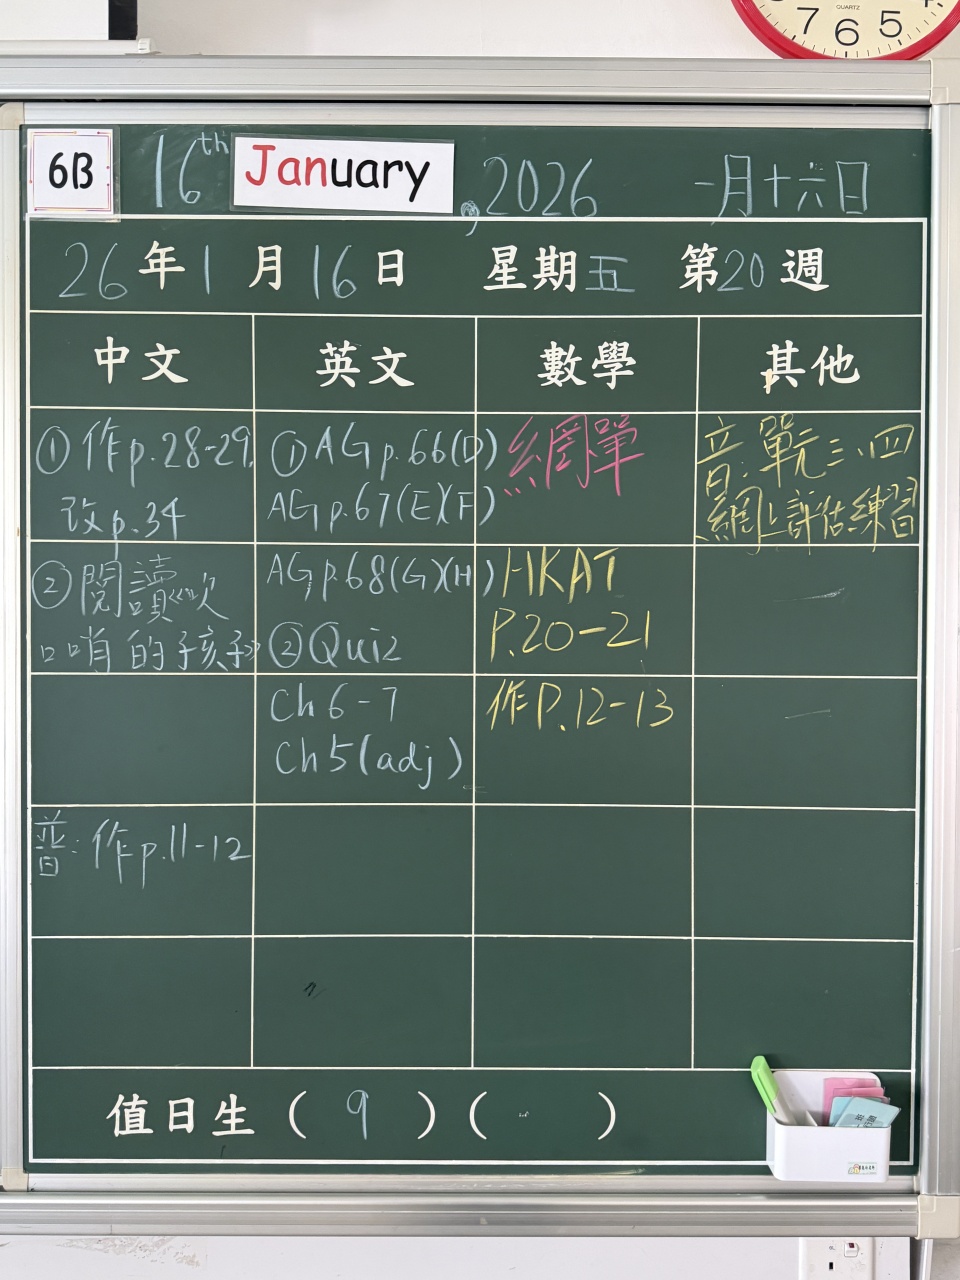 QUARTZ
7 6 5
6B 16th January, 2026 一月十六日
26年1月16日 星期五 第20週
中文 英文 數學 其他
①作p.28-29
改p.34
①AG p.66(D)
AG p.67(E)(F)
網單
音:單元三、四
網上評估練習
②閱讀《吹
口哨的孩子》
AG p.68(G)(H)
②Quiz
HKAT
P.20-21
Ch 6-7
Ch 5(adj)
作P.12-13
普:作p.11-12
值日生(9)( )